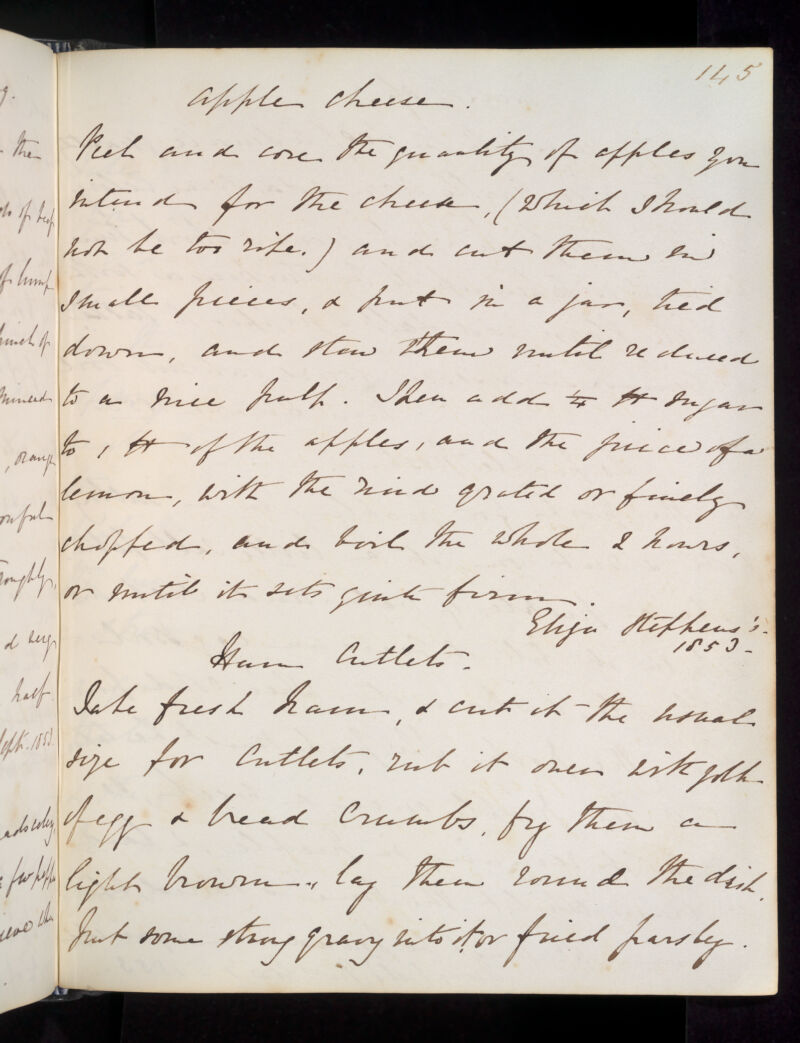 145
Apple Cheese.
Peel and core the quantity of apples you
intend for the cheese, (which should
not be too ripe.) and cut them in
small pieces, & put in a jar, tied
down, and stew them until reduced
to a nice pulp. Then add ¼ lb sugar
to 1 lb of the apples, and the juice of a
lemon, with the rind grated or finely
chopped, and boil the whole 2 hours,
or until it sets quite firm.
Eliza Stephens's.
1853.
Ham Cutlets.
Take fresh ham, & cut it the usual
size for Cutlets, rub it over with yolk
of egg & bread Crumbs, fry them a
light brown, lay them round the dish,
put some strong gravy into it or fried parsley.
the
of lump
minced
, orange
half
Sept. 1853